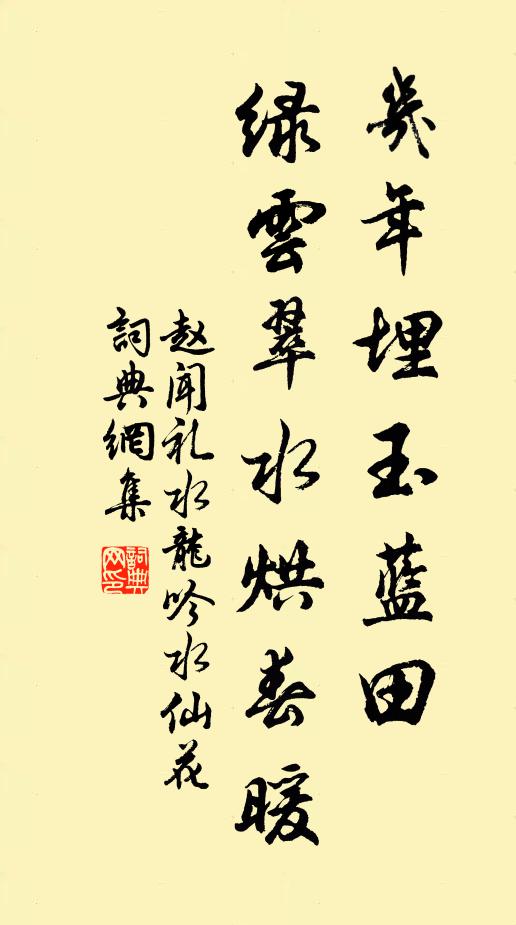 幾年埋玉蓝田
绿雲翠水烘春暖
赵闻礼水龍吟水仙花
詞典網集
詞典网印